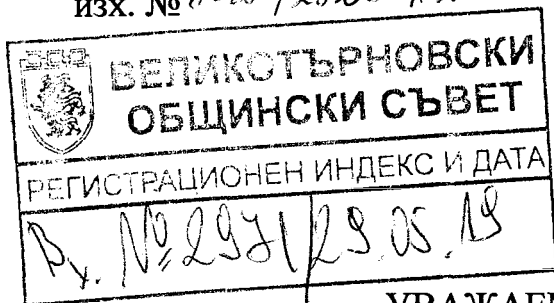 изх. №
ВЕЛИКОТЪРНОВСКИ
ОБЩИНСКИ СЪВЕТ
РЕГИСТРАЦИОНЕН ИНДЕКС И ДАТА
Вх. № 2971/29.05.19